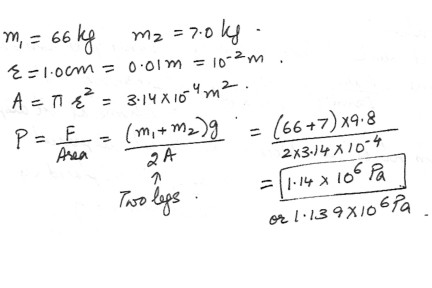 m₁ = 66 kg   m₂ = 7.0 kg.
r = 1.0cm = 0.01m = 10⁻² m.
A = π r² = 3.14 X 10⁻⁴ m².
P = F/Area = (m₁+m₂)g/2A = (66+7)×9.8/2×3.14×10⁻⁴
↑
Two legs.
= 1.14 × 10⁶ Pa
or 1.139×10⁶ Pa.